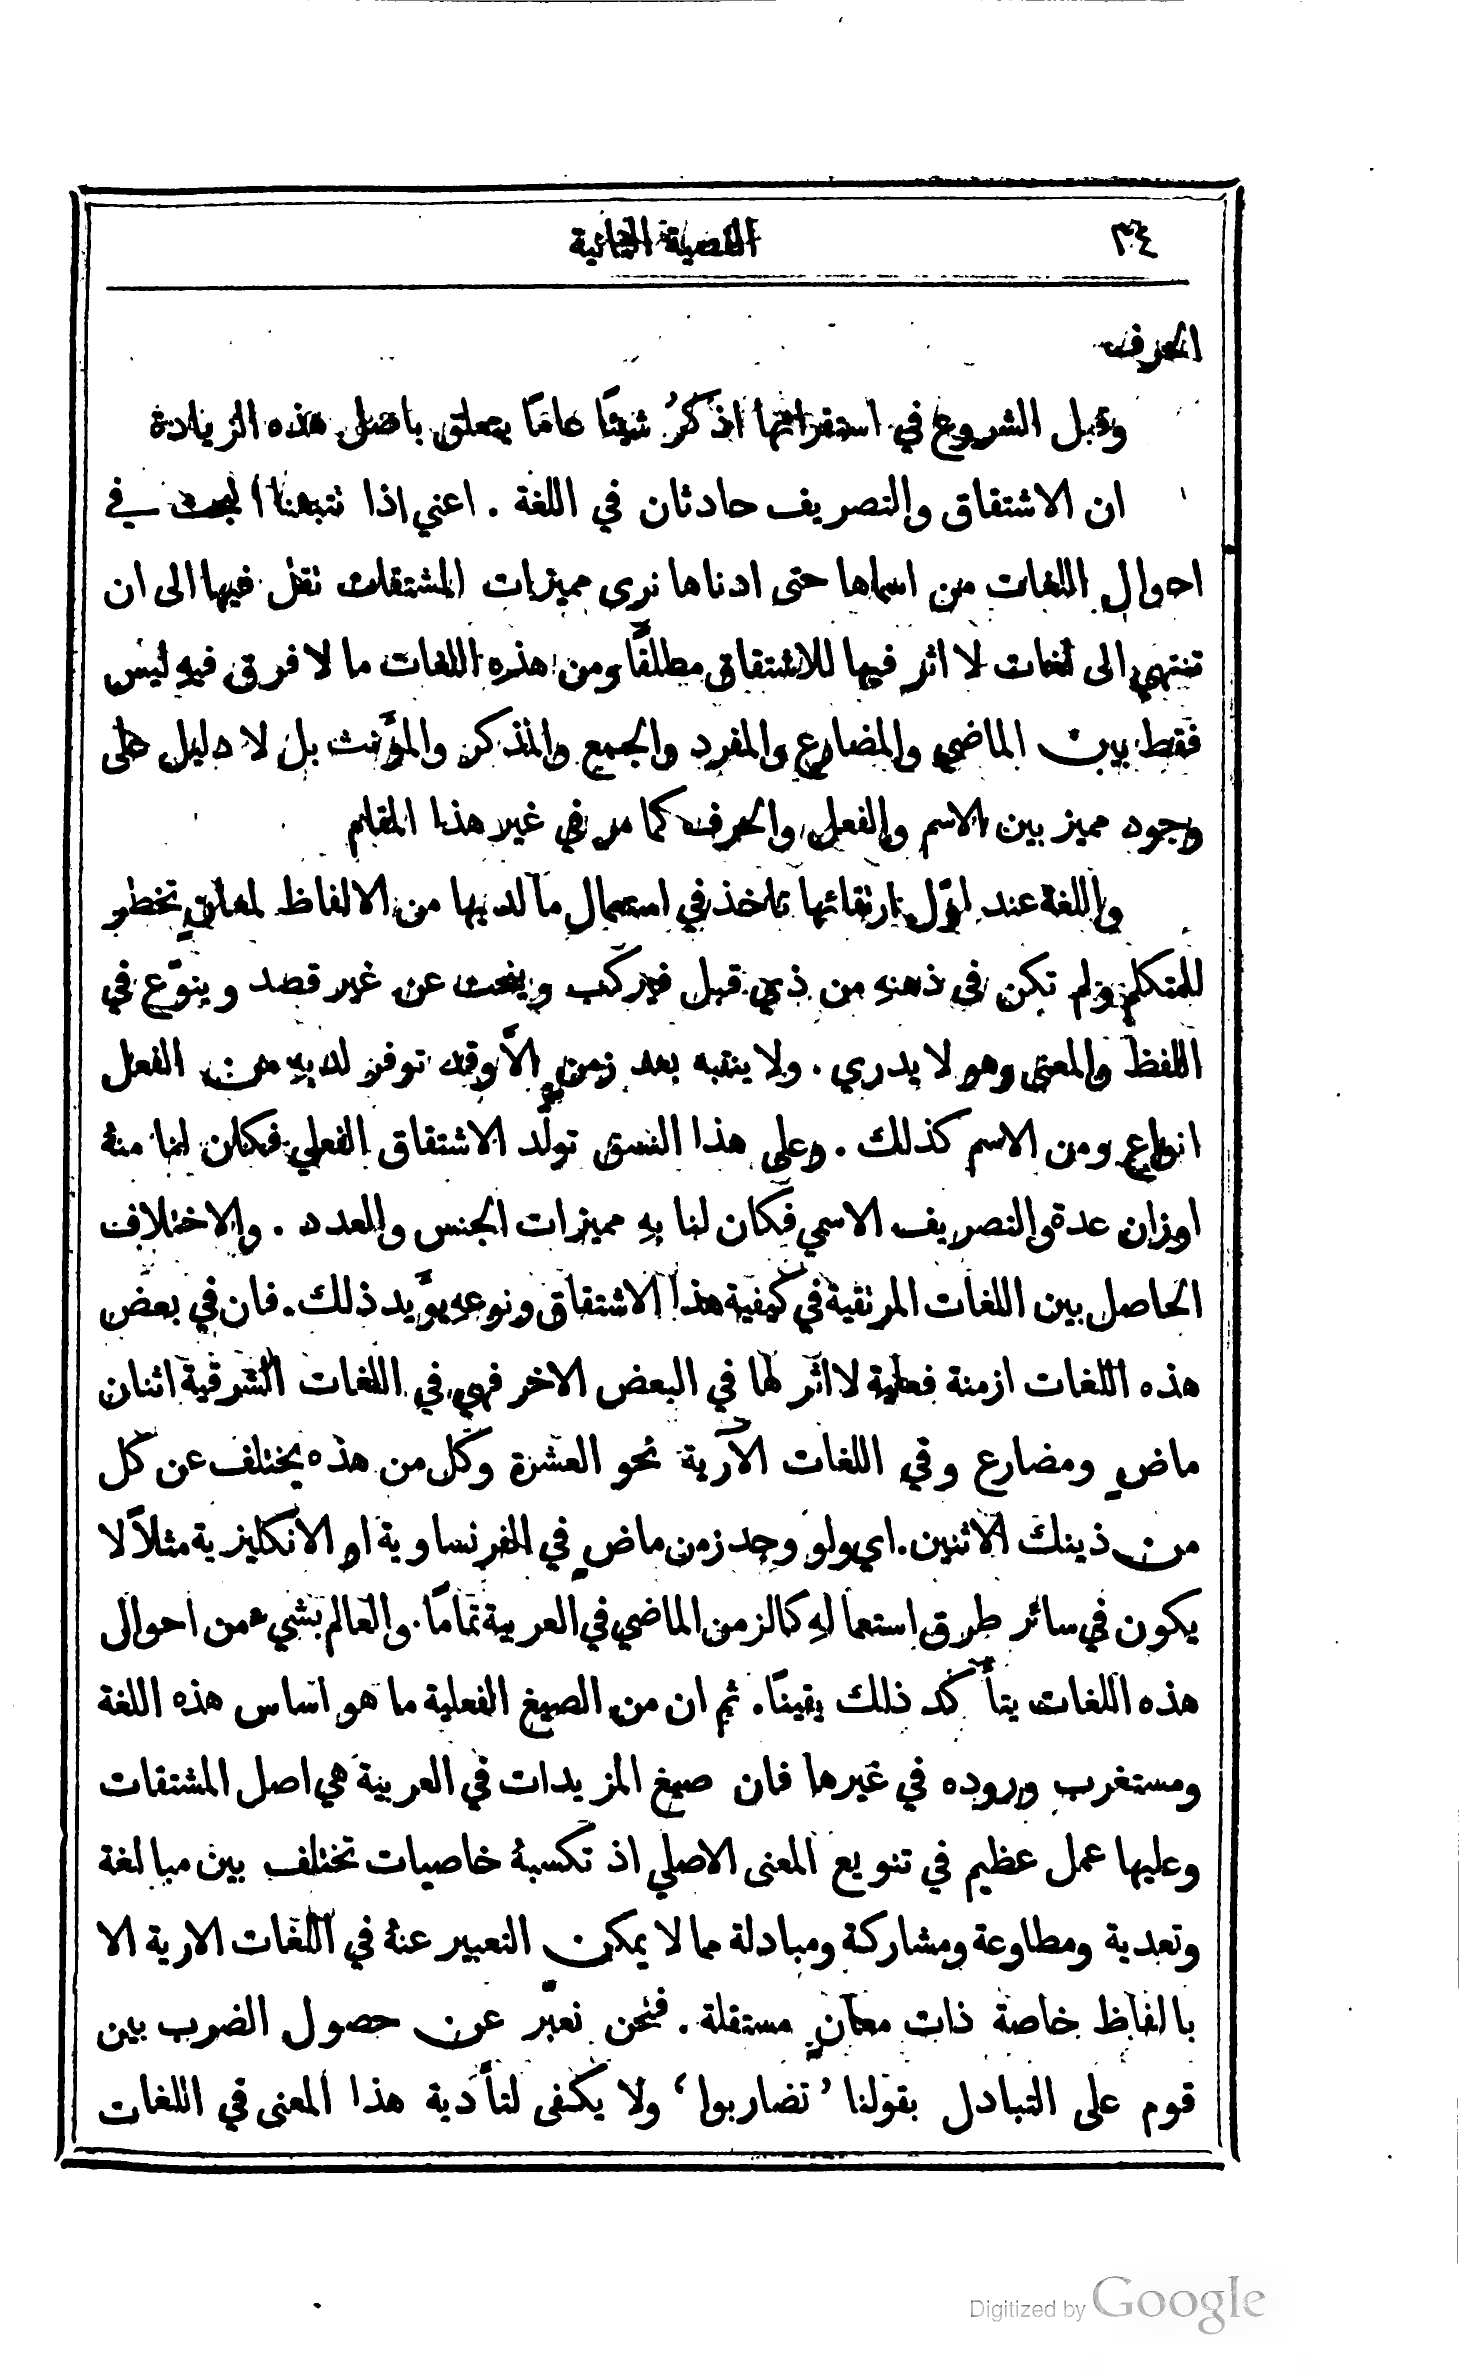 ٣٤
القضية الثانية
الحرف
وقبل الشروع في استقرائها اذكرُ شيئًا عامًا يتعلق باصل هذه الزيادة
ان الاشتقاق والتصريف حادثان في اللغة . اعني اذا تتبعنا البحث في
احوال اللغات من اسماها حتى ادناها نرى مميزات المشتقات تقل فيها الى ان
تنتهي الى لغات لا اثر فيها للاشتقاق مطلقًا ومن هذه اللغات ما لا فرق فيه ليس
فقط بين الماضي والمضارع والمفرد والجمع والمذكر والمؤَنث بل لا دليل على
وجود مميز بين الاسم والفعل والحرف كما مر في غير هذا المقام
واللغة عند اوَّل ارتقائها تاخذ في استعمال ما لديها من الالفاظ لمعانٍ تخطر
للمتكلم ولم تكن في ذهنهِ من ذي قبل فيركّب وينحت عن غير قصد وينوّع في
اللفظ والمعنى وهو لا يدري . ولا ينتبه بعد زمنٍ الَّا وقد توفر لديهِ من الفعل
انواع ومن الاسم كذلك . وعلى هذا النسق تولَّد الاشتقاق الفعلي فكان لنا منهُ
اوزان عدة والتصريف الاسمي فكان لنا بهِ مميزات الجنس والعدد . والاختلاف
الحاصل بين اللغات المرتقية في كيفية هذا الاشتقاق ونوعهِ يؤَيد ذلك . فان في بعض
هذه اللغات ازمنة فعلية لا اثر لها في البعض الاخر فهي في اللغات الشرقية اثنان
ماضٍ ومضارع وفي اللغات الآرية نحو العشرة وكل من هذه يختلف عن كل
من ذينك الاثنين . اي ولو وجد زمن ماضٍ في الفرنساوية او الانكليزية مثلاً لا
يكون في سائر طرق استعمالهِ كالزمن الماضي في العربية تمامًا . والعالم بشيء من احوال
هذه اللغات يتأَكد ذلك يقينًا . ثم ان من الصيغ الفعلية ما هو اساس هذه اللغة
ومستغرب وروده في غيرها فان صيغ المزيدات في العربية هي اصل المشتقات
وعليها عمل عظيم في تنويع المعنى الاصلي اذ تكسبهُ خاصيات تختلف بين مبالغة
وتعدية ومطاوعة ومشاركة ومبادلة مما لا يمكن التعبير عنهُ في اللغات الارية الا
بالفاظ خاصة ذات معانٍ مستقلة . فنحن نعبّر عن حصول الضرب بين
قوم على التبادل بقولنا ’تضاربوا‘ ولا يكفى لتأَدية هذا المعنى في اللغات
Digitized by Google